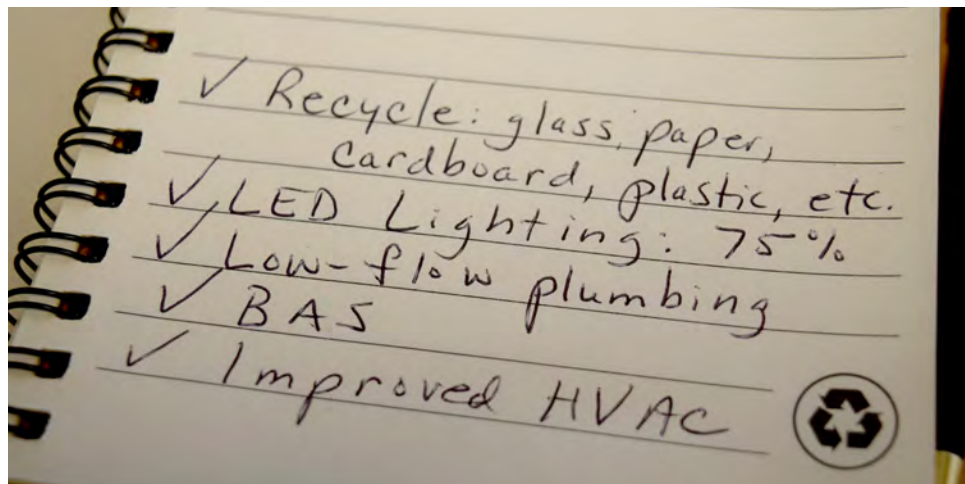 ✓ Recycle: glass, paper,
cardboard, plastic, etc.
✓ LED Lighting: 75%
✓ Low-flow plumbing
✓ BAS
✓ Improved HVAC